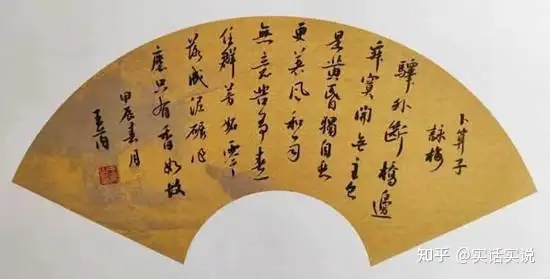 卜算子
詠梅
驛外斷橋邊
寂寞開无主已
是黃昏獨自愁
更著風和雨
無意苦爭春一
任群芳妒零
落成泥碾作
塵只有香如故
甲辰春月
知乎 @实话实说